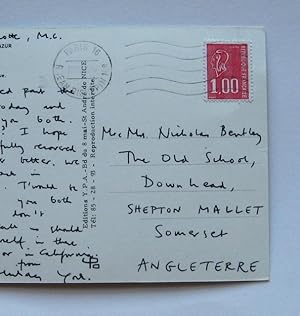 otte, M.C.
AZUR
PARIS 16
REPUBLIQUE FRANCAISE
1,00
past the
today and
you both
? I hope
fully recovered
better. We
in
. Would to
you both
don't
should
self in the
or in California
from
York.
Editions Y.P.A. - Bd du 8 mai - St André de NICE
Tél: 85 - 28 - 93 - Reproduction interdite.
Mr Mrs Nicholas Bentley
The Old School,
Downhead,
SHEPTON MALLET
Somerset
ANGLETERRE